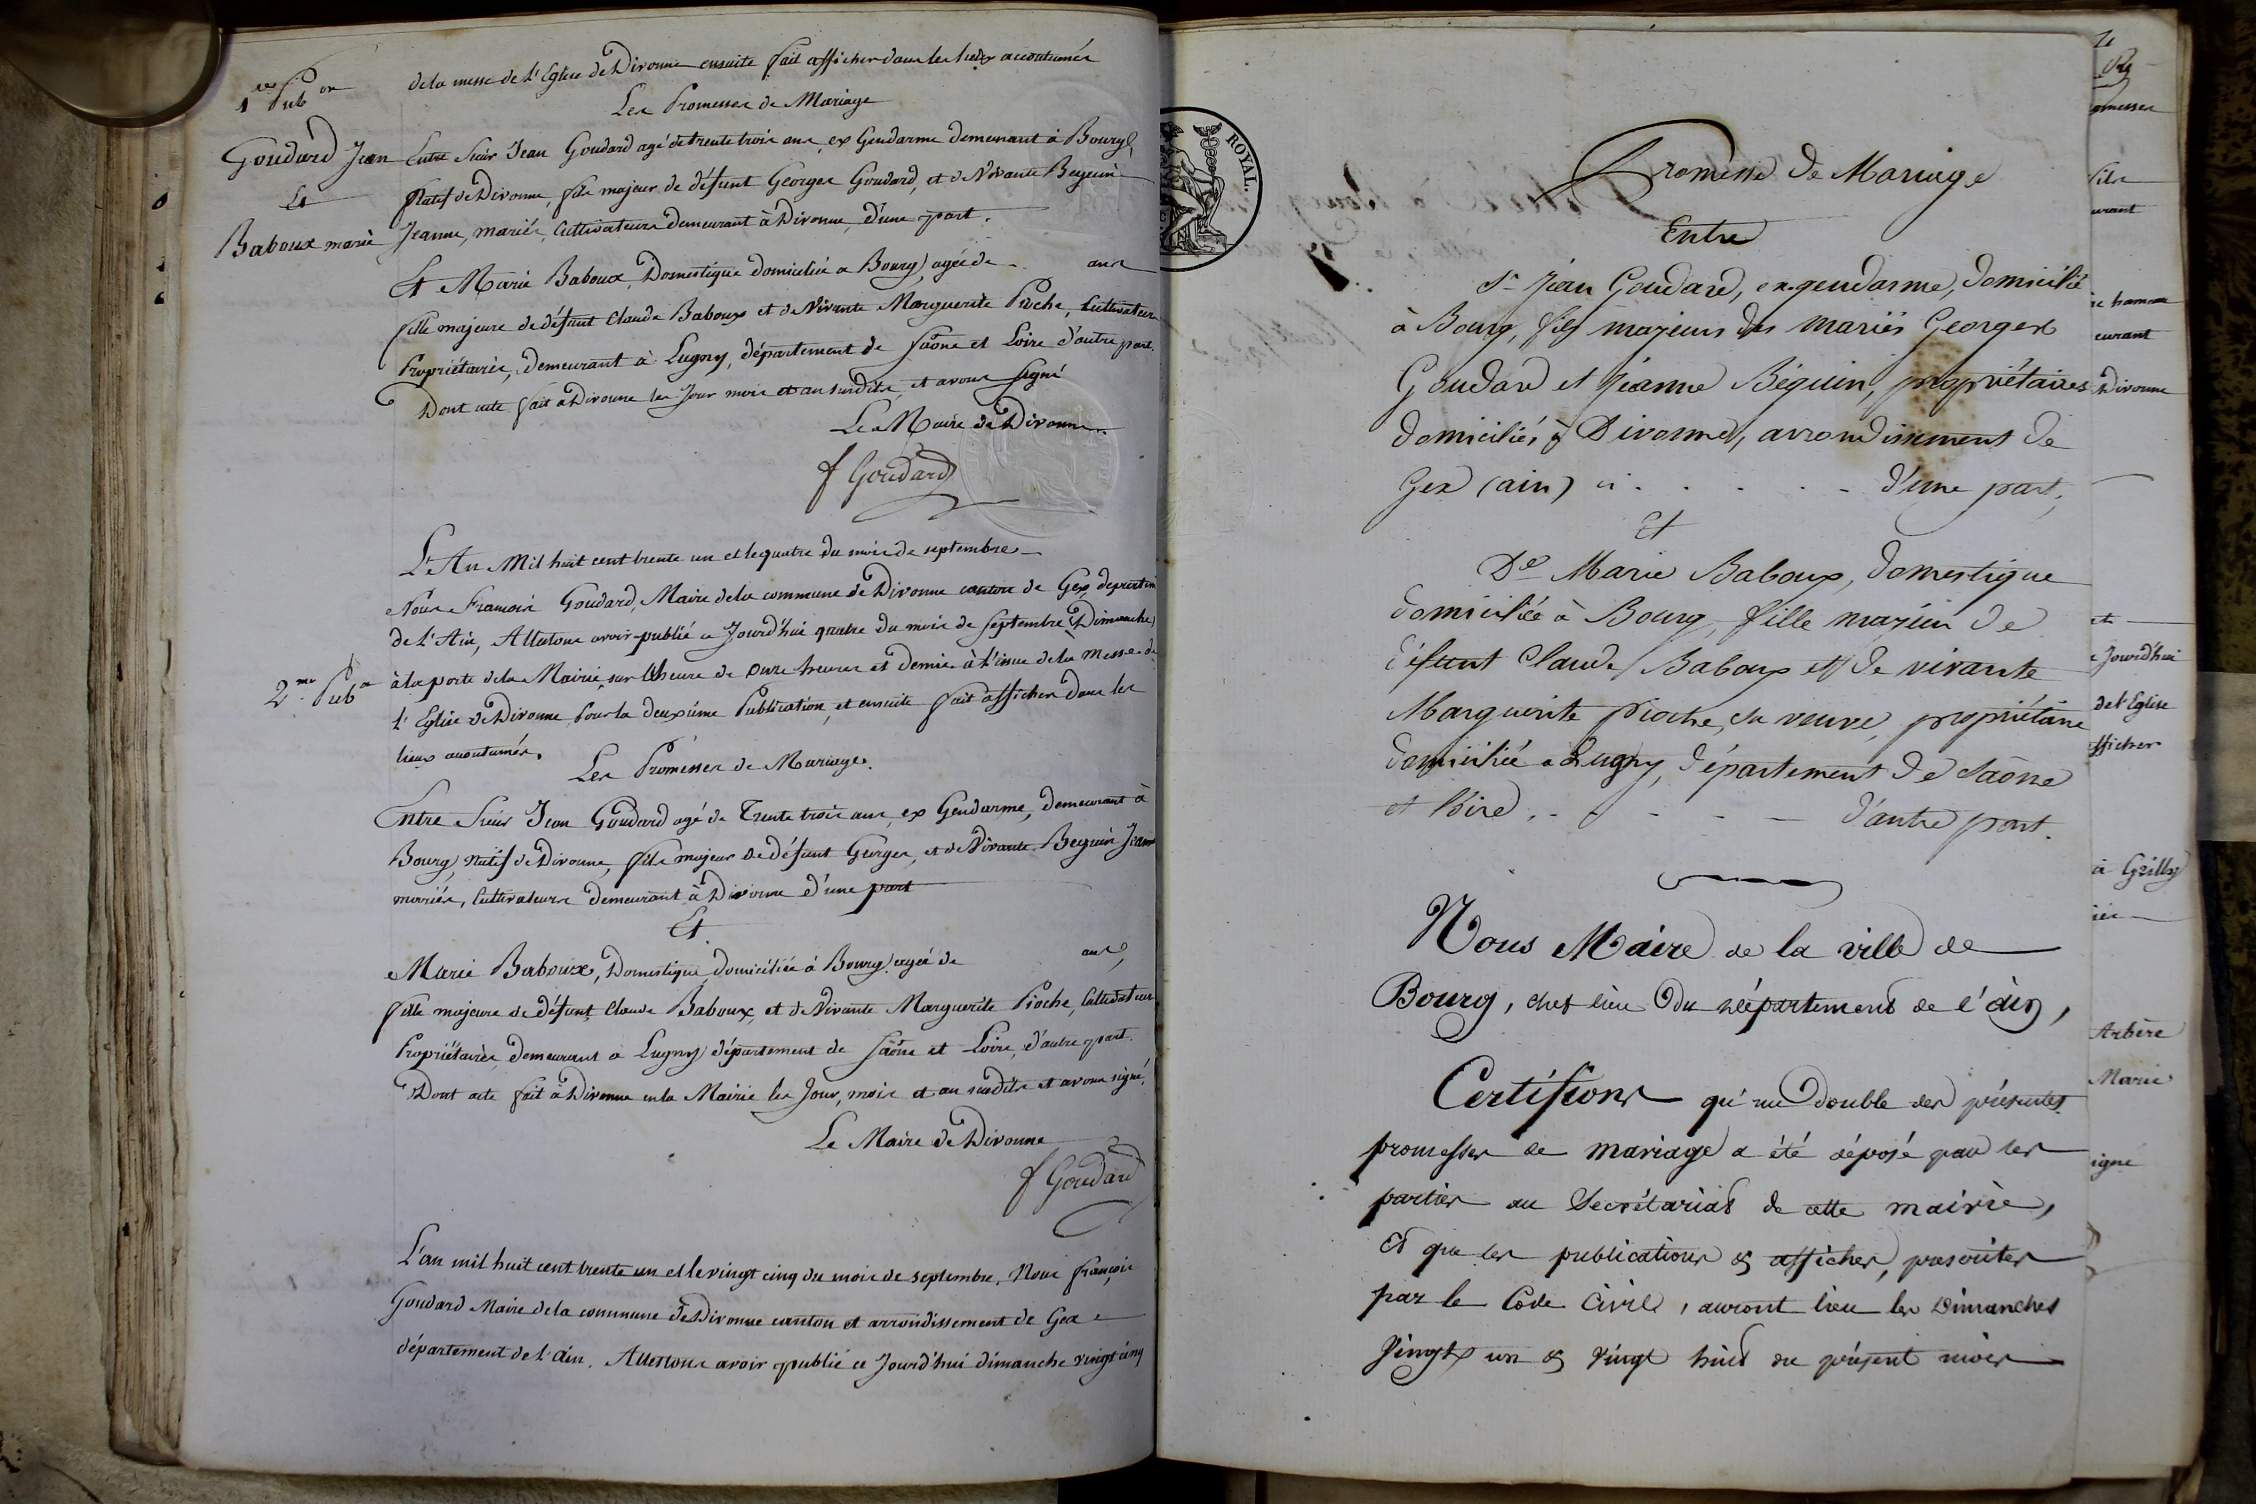 de la messe de l'Eglise de Divonne ensuite fait afficher dans les lieux accoutumés
1re Pubon
Les Promesses de Mariage
Goudard Jean
Et
Baboux marie
Entre Sieur Jean Goudard agé de trente trois ans, ex Gendarme demeurant à Bourg,
Natif de Divonne, fils majeur de défunt Georges Goudard, et de Vivante Beguin
Jeanne, mariés, Cultivateurs demeurant à Divonne, d'une part.
Et Marie Baboux Domestique domiciliée a Bourg, agée de ans
fille majeure de défunt Claude Baboux et de Vivante Marguerite Pioche, Cultivateurs
Propriétaires, demeurant à Lugny, département de Saône et Loire d'autre part.
Dont acte fait à Divonne les Jour mois et an susdits, et avons signé
Le Maire de Divonne
f Goudard
L'An Mil huit cent trente un et le quatre du mois de septembre
Nous François Goudard, Maire de la commune de Divonne canton de Gex, departem
de l'Ain, Attestons avoir publié ce Jourd'hui quatre du mois de Septembre (Dimanche)
2me Pubon
à la porte de la Mairie, sur l'heure de onze heures et demie à l'issue de la Messe de
l'Eglise de Divonne Pour la deuxième Publication, et ensuite fait afficher dans les
lieux accoutumés.
Les Promesses de Mariage.
Entre Sieur Jean Goudard agé de Trente trois ans, ex Gendarme, demeurant à
Bourg, natif de Divonne, fils majeur de défunt Georges, et de Vivante Beguin Jeanne
mariés, Cultivateurs demeurant à Divonne d'une part
Et
Marie Baboux, Domestique domiciliée à Bourg agée de ans,
fille majeure de défunt Claude Baboux, et de Vivante Marguerite Pioche, Cultivateurs
Propriétaires, demeurant a Lugny département de Saône et Loire, d'autre part.
Dont acte fait à Divonne en la Mairie les Jour, mois et an susdits et avons signé.
Le Maire de Divonne
f Goudard
L'an mil huit cent trente un et le vingt cinq du mois de septembre, Nous françois
Goudard Maire de la commune de Divonne canton et arrondissement de Gex
département de l'Ain. Attestons avoir publié ce Jourd'hui dimanche vingt cinq
ROYAL.
Promesse de Mariage
Entre
Sr Jean Goudard, ex gendarme, domicilié
à Bourg, fils majeur des mariés Georges
Goudard et Jeanne Béguin, propriétaires
domiciliés à Divonne, arrondissement de
Gex (ain) d'une part,
Et
De Marie Baboux, domestique
domiciliée à Bourg, fille majeur de
défunt Claude Baboux et de vivante
Marguerite Pioche, sa veuve, propriétaire
domiciliée a Lugny, département de Saône
et Loire, d'autre part.
Nous Maire de la ville de
Bourg, chef lieu du département de l'ain,
Certifions qu'un double des présentes
promesses de mariage a été déposé par les
parties au Secrétariat de cette mairie,
et que les publications & affiches, prescrites
par le Code Civil, auront lieu les Dimanches
vingt un & vingt huit du présent mois
omesses
fils
urant
hameau
eurant
Divonne
et
Jourd'hui
de l'Eglise
fficher
à Grilly
Arbère
Marie
igné